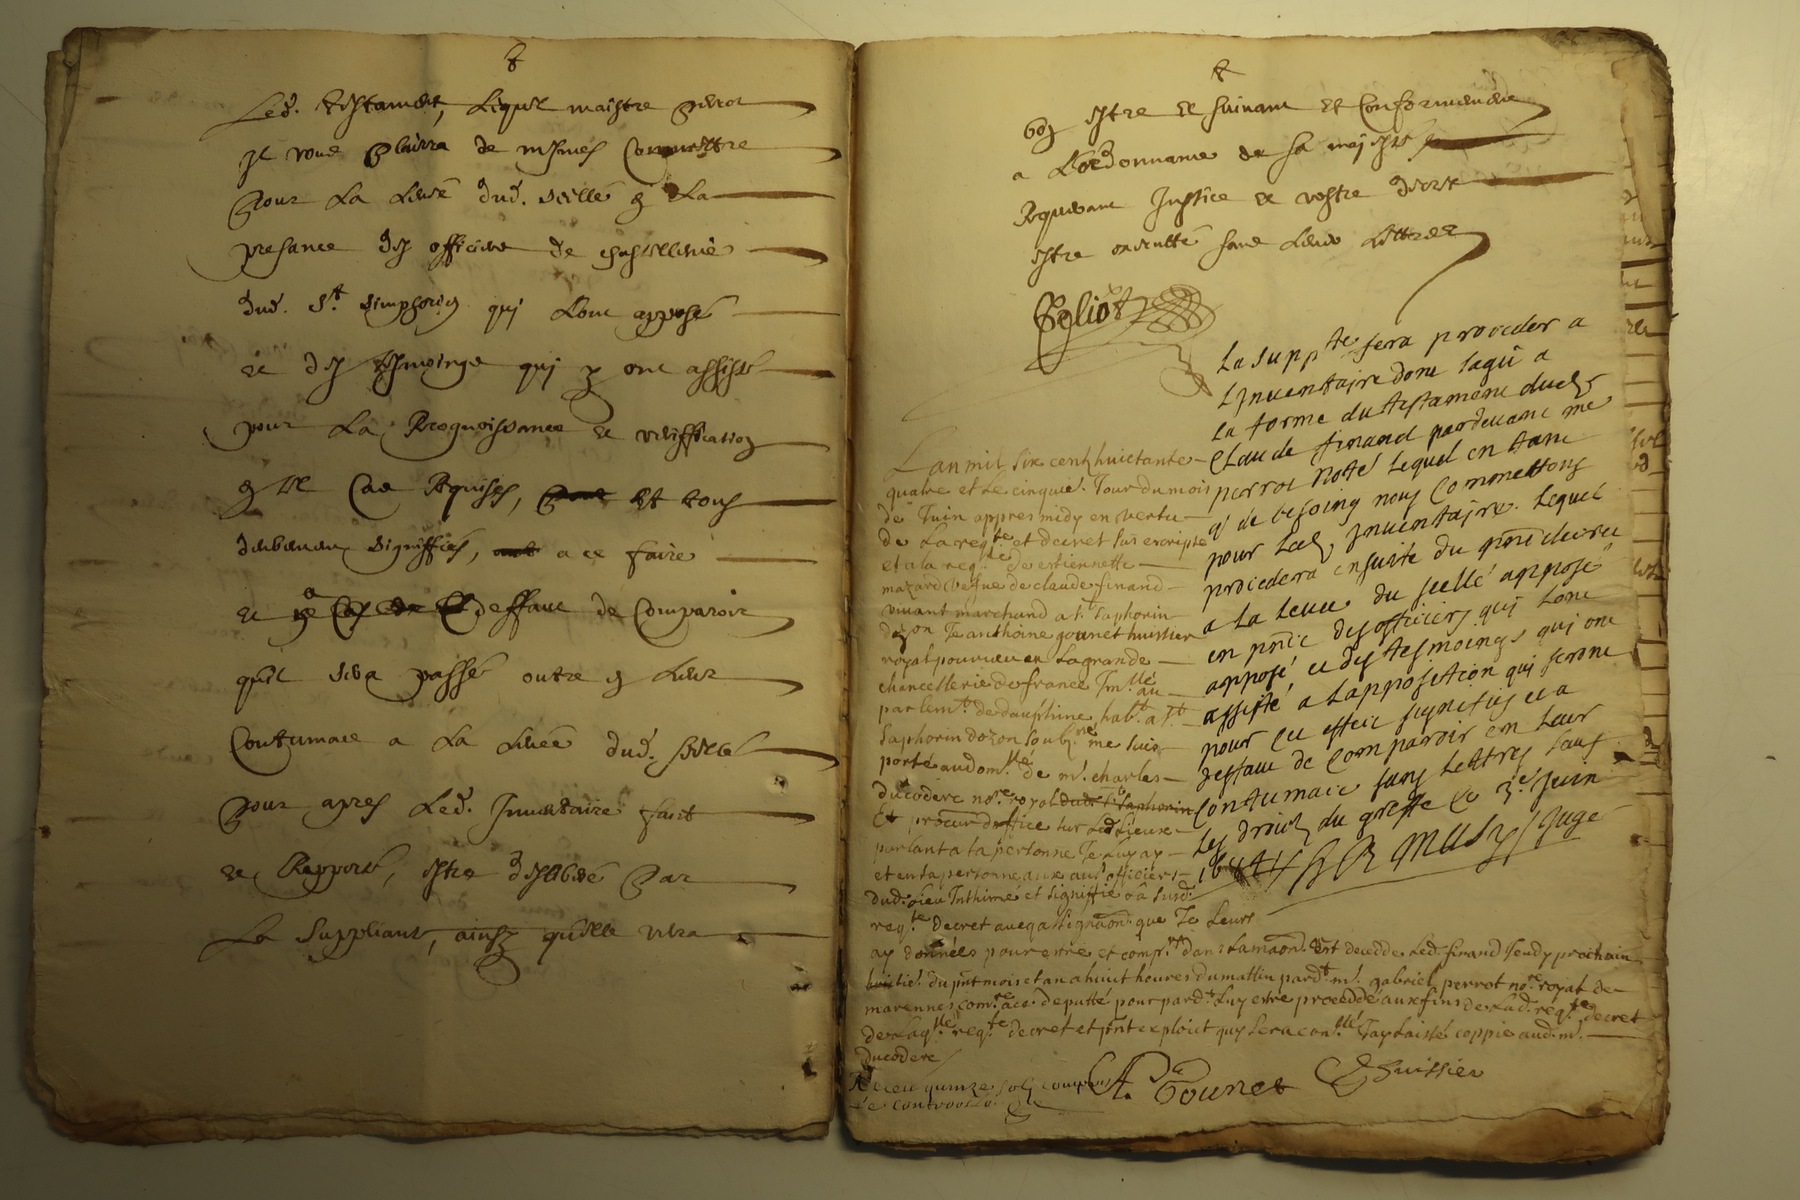 Led. testament, Lequel maistre perrot
Il vous plairra de mesmes Commettre
pour La Levée dud. seellé en La
presance des officiers de chastellenie
dud. St. simphorien quj Lont apposé
et des tesmoings quj y ont assisté
pour La Recognoissance et veriffication
en tel Cas Requises, et tous
a ce faire
et deffaut de Comparoir
quil sera passé outre en Leur
Contumace a La Levée dud. seellé
pour apres Led. Inventaire fait
et Rapporté, estre deslibéré par
La Suppliant, ainsy quelle verra
estre et suivant et Conformement
a Lordonnance de sa majesté
Requerant Justice et vostre decret
estre executté sans autres Lettres
Pegliot
La suppte fera proceder a
Linventaire dont sagit a
la forme du testament dud.
Claude finand pardevant me
perrot noté lequel en tant
q. de besoing nous Commettons
pour led. Inventaire. Lequel
procedera ensuite du pnt decret
a la levee du seellé apposé
en pnce des officiers qui lont
apposé, et des tesmoings qui ont
assisté a lapposition qui seront
pour cet effect signifiés et a
deffaut de comparoir en leur
contumace sans lettres sauf
les droits du greffe Ce 3e Juin
1684 Juge
Lan mil six cent huictante
quatre et Le cinquie. Jour du mois
de Juin appres midy en vertu
de La reqte et decret sus escripte
et a la reqte de estiennette
mazard vefve de claude finand
vivant marchand a st saphorin
dozon Je anthoine gounet huissier
royal pourveu en La grande
chancellerie de france Im.lé au
parlemt. de dauphine habt. a st
saphorin dozon soubz.né me suis
porté au domlle de mr. charles
ducodere nore royal
Et procur doffice sur Led Lieux
parlant a sa personne Je Luy ay
et en sa personne aux auts officiers
dud. Lieu Inthimé et signiffié
reqte decret aveq assignaon. que Je Leurs
ay données pour estre et compt dans La maon. decedde Led. finand Jeudy prochain
huitie. du pnt mois et an a huict heures du mattin pardt. mr. gabriel perrot nore royal de
marennes comre a ce deputté pour pardt. Luy estre procedde aux fins de Lad. reqte decret
de Laqlle reqte decret et pnt exploict Jay Laissé coppie aud. mr.
ducodere
Receu quinze solz
Le controolle
A. Gounet huissier